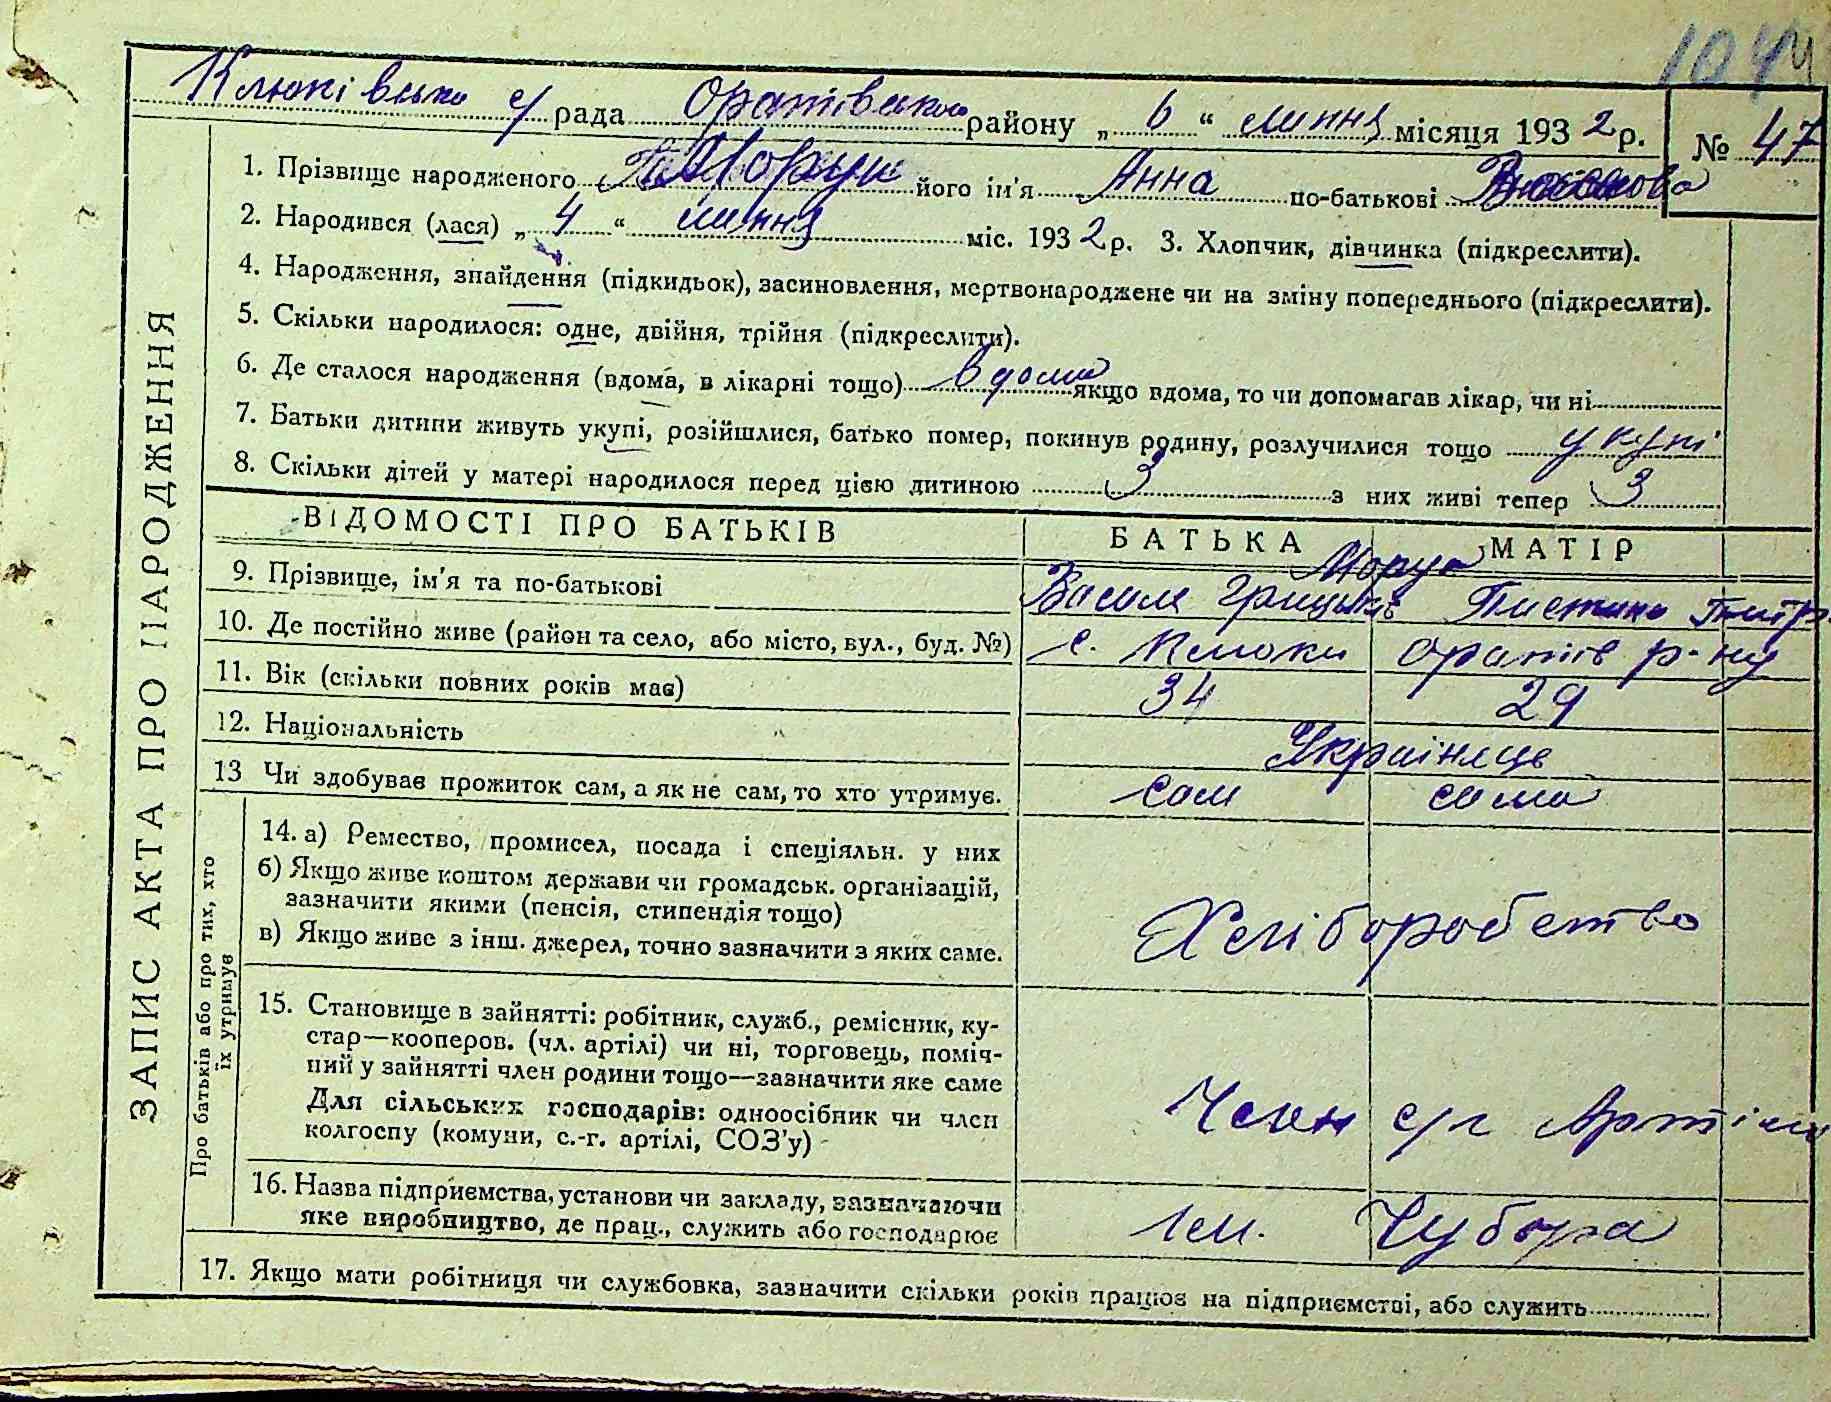 1044
Клюківська с/рада Оратівського району „ 6 “ липня місяця 1932 р. № 47
1. Прізвище народженого Моруи його ім'я Анна по-батькові
2. Народився (лася) „ 4 “ липня міс. 1932 р. 3. Хлопчик, дівчинка (підкреслити).
4. Народження, знайдення (підкидьок), засиновлення, мертвонароджене чи на зміну попереднього (підкреслити).
5. Скільки народилося: одне, двійня, трійня (підкреслити).
6. Де сталося народження (вдома, в лікарні тощо) вдома якщо вдома, то чи допомагав лікар, чи ні
7. Батьки дитини живуть укупі, розійшлися, батько помер, покинув родину, розлучилися тощо укупі
8. Скільки дітей у матері народилося перед цією дитиною 3 з них живі тепер 3
ВІДОМОСТІ ПРО БАТЬКІВ БАТЬКА МАТІР
9. Прізвище, ім'я та по-батькові Василь Грицьків
10. Де постійно живе (район та село, або місто, вул., буд. №) с. Клюки Оратів р-ну
11. Вік (скільки повних років має) 34 29
12. Національність Українець
13 Чи здобуває прожиток сам, а як не сам, то хто утримує. сам сама
14. а) Ремество, промисел, посада і спеціяльн. у них
б) Якщо живе коштом держави чи громадськ. організацій,
зазначити якими (пенсія, стипендія тощо)
в) Якщо живе з інш. джерел, точно зазначити з яких саме.
Хліборобство
15. Становище в зайнятті: робітник, служб., ремісник, ку-
стар—кооперов. (чл. артілі) чи ні, торговець, поміч-
ний у зайнятті член родини тощо—зазначити яке саме
Для сільських господарів: одноосібник чи член
колгоспу (комуни, с.-г. артілі, СОЗ'у)
Член с/г Артіли
16. Назва підприємства, установи чи закладу, зазначаючи
яке виробництво, де прац., служить або господарює
ім. Чубара
17. Якщо мати робітниця чи службовка, зазначити скільки років працює на підприємстві, або служить
ЗАПИС АКТА ПРО НАРОДЖЕННЯ
Про батьків або про тих, хто
їх утримує